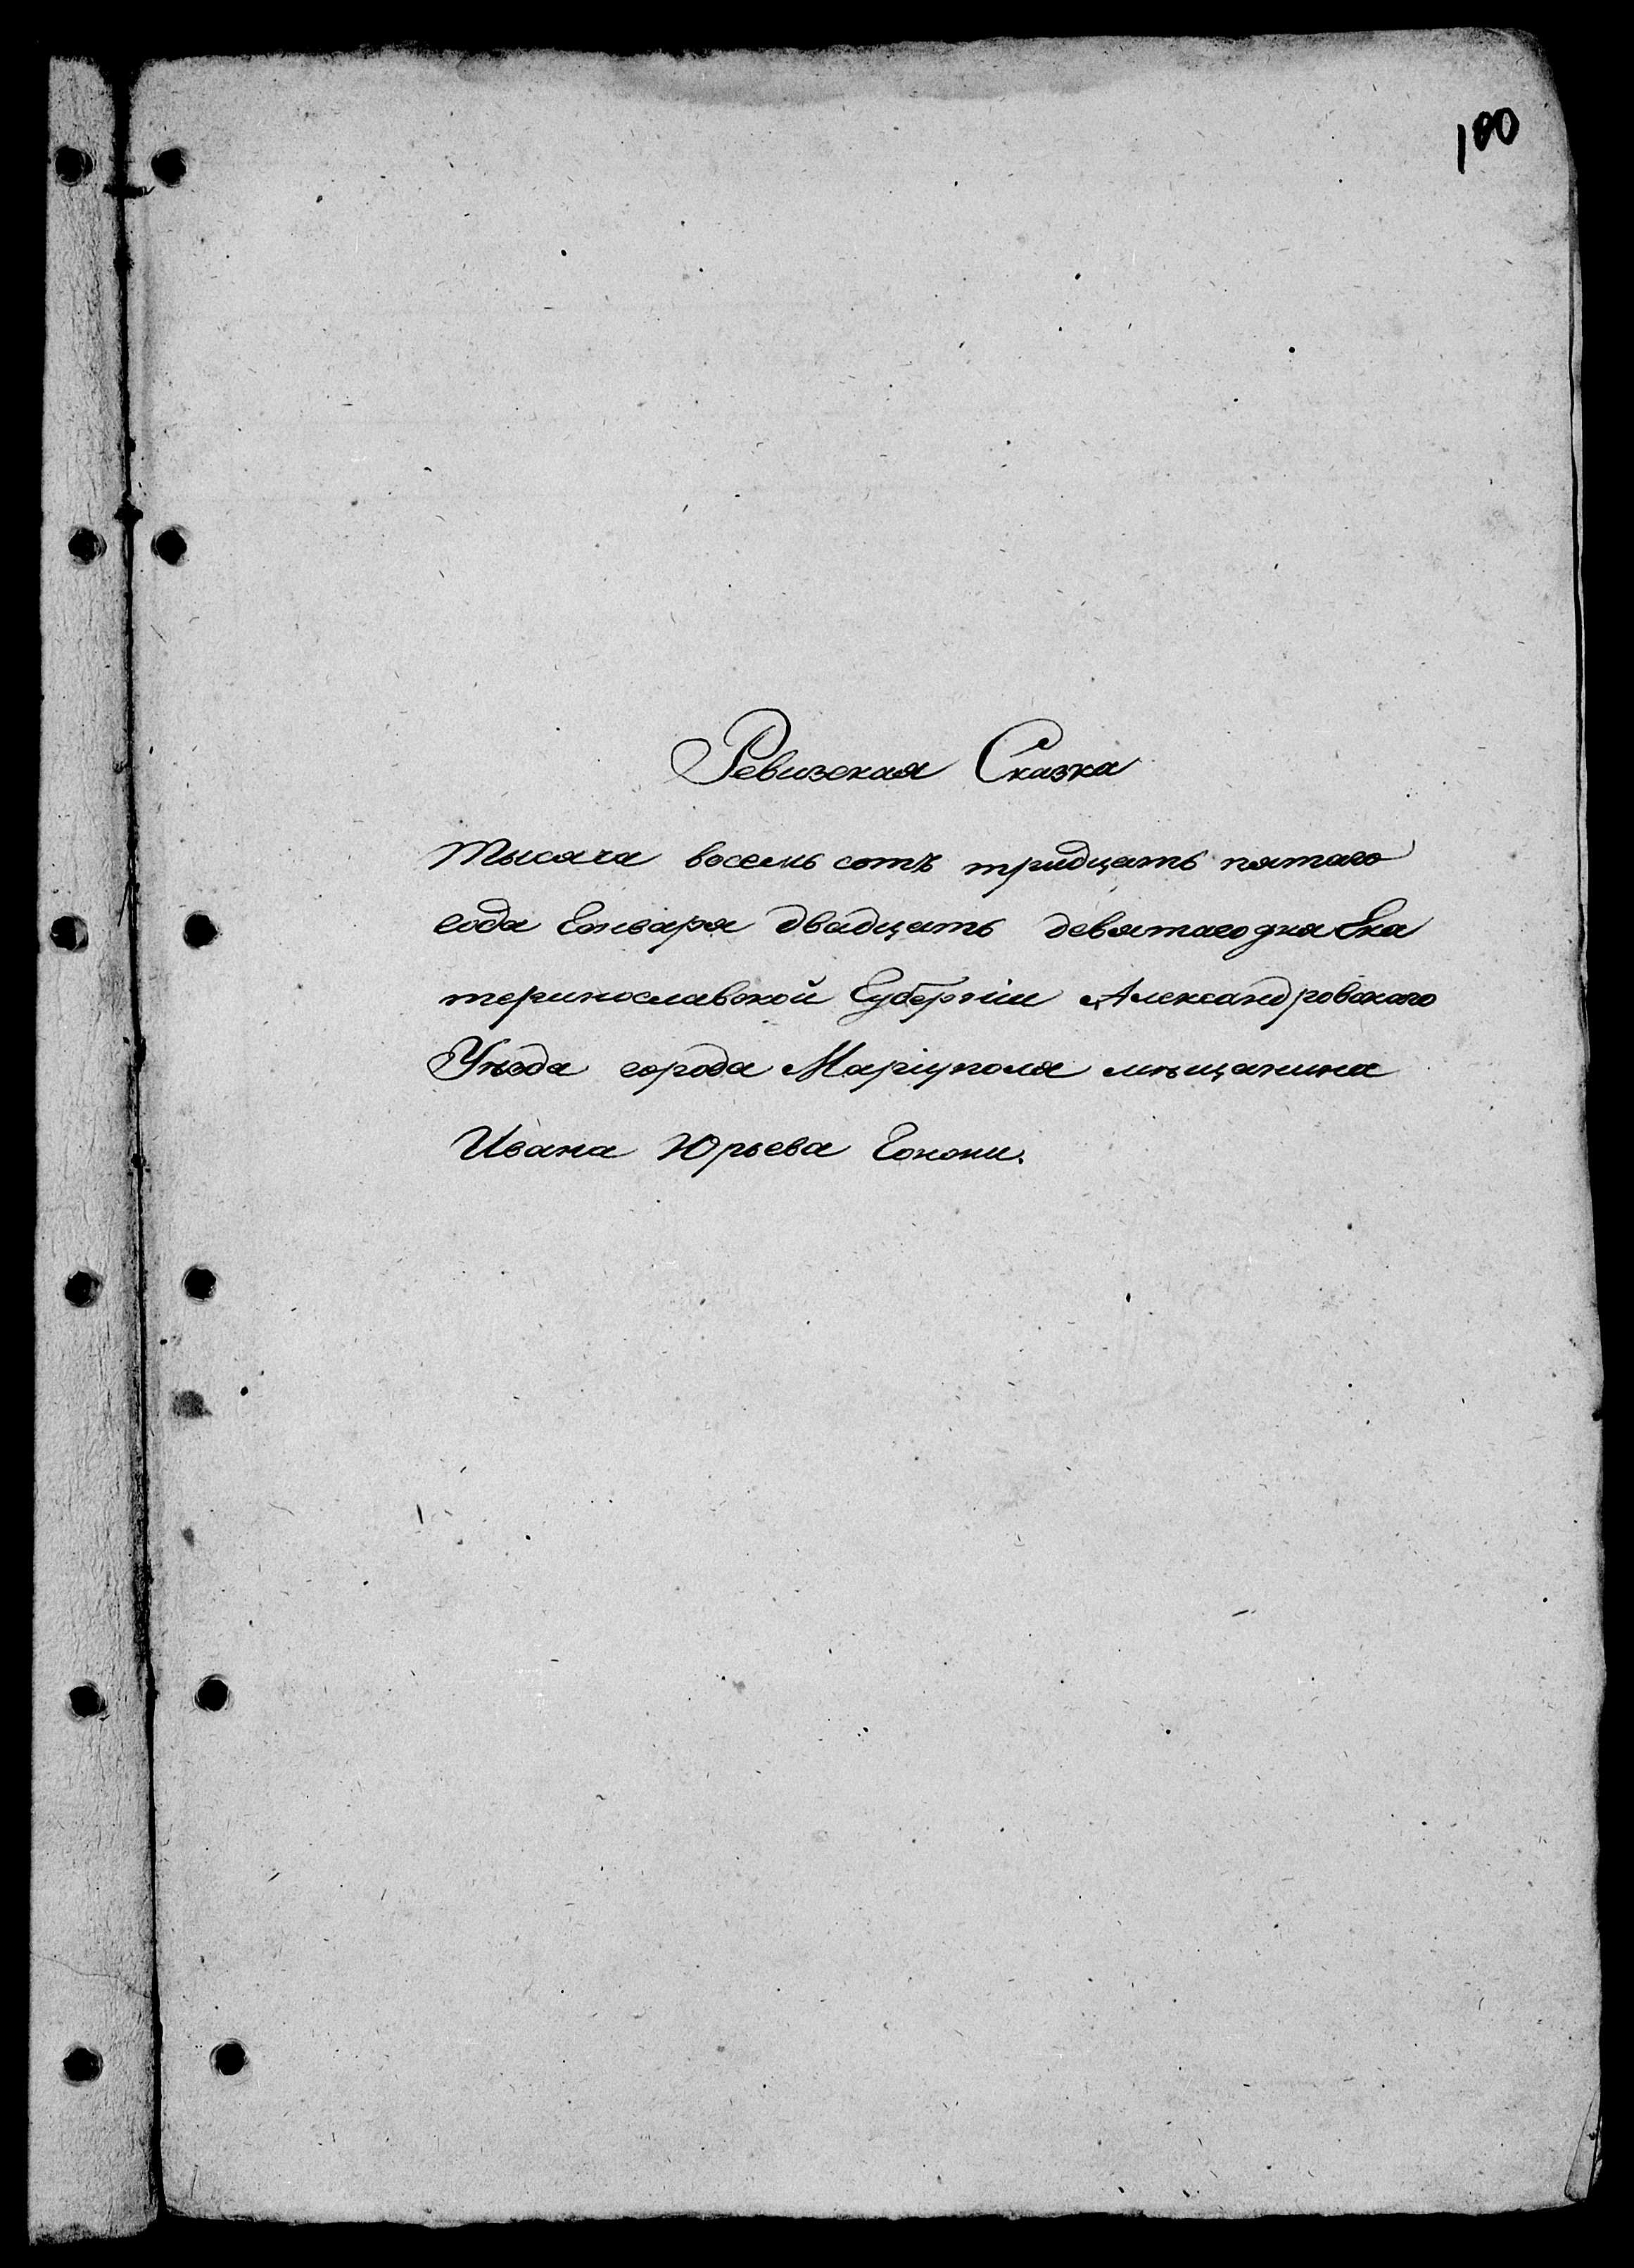 100
Ревизская Сказка
Тысяча восемь сотъ тридцать пятаго
года Генваря двадцать девятаго дня Ека
теринославской Губерніи Александровскаго
Уѣзда города Маріуполя мѣщанина
Ивана Юрьева